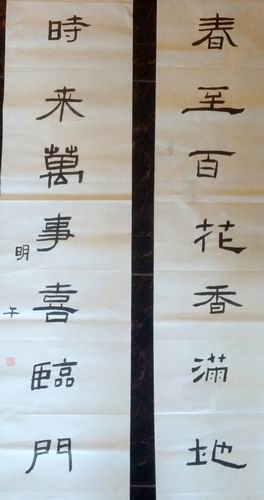 春至百花香滿地
時来萬事喜臨門
明午